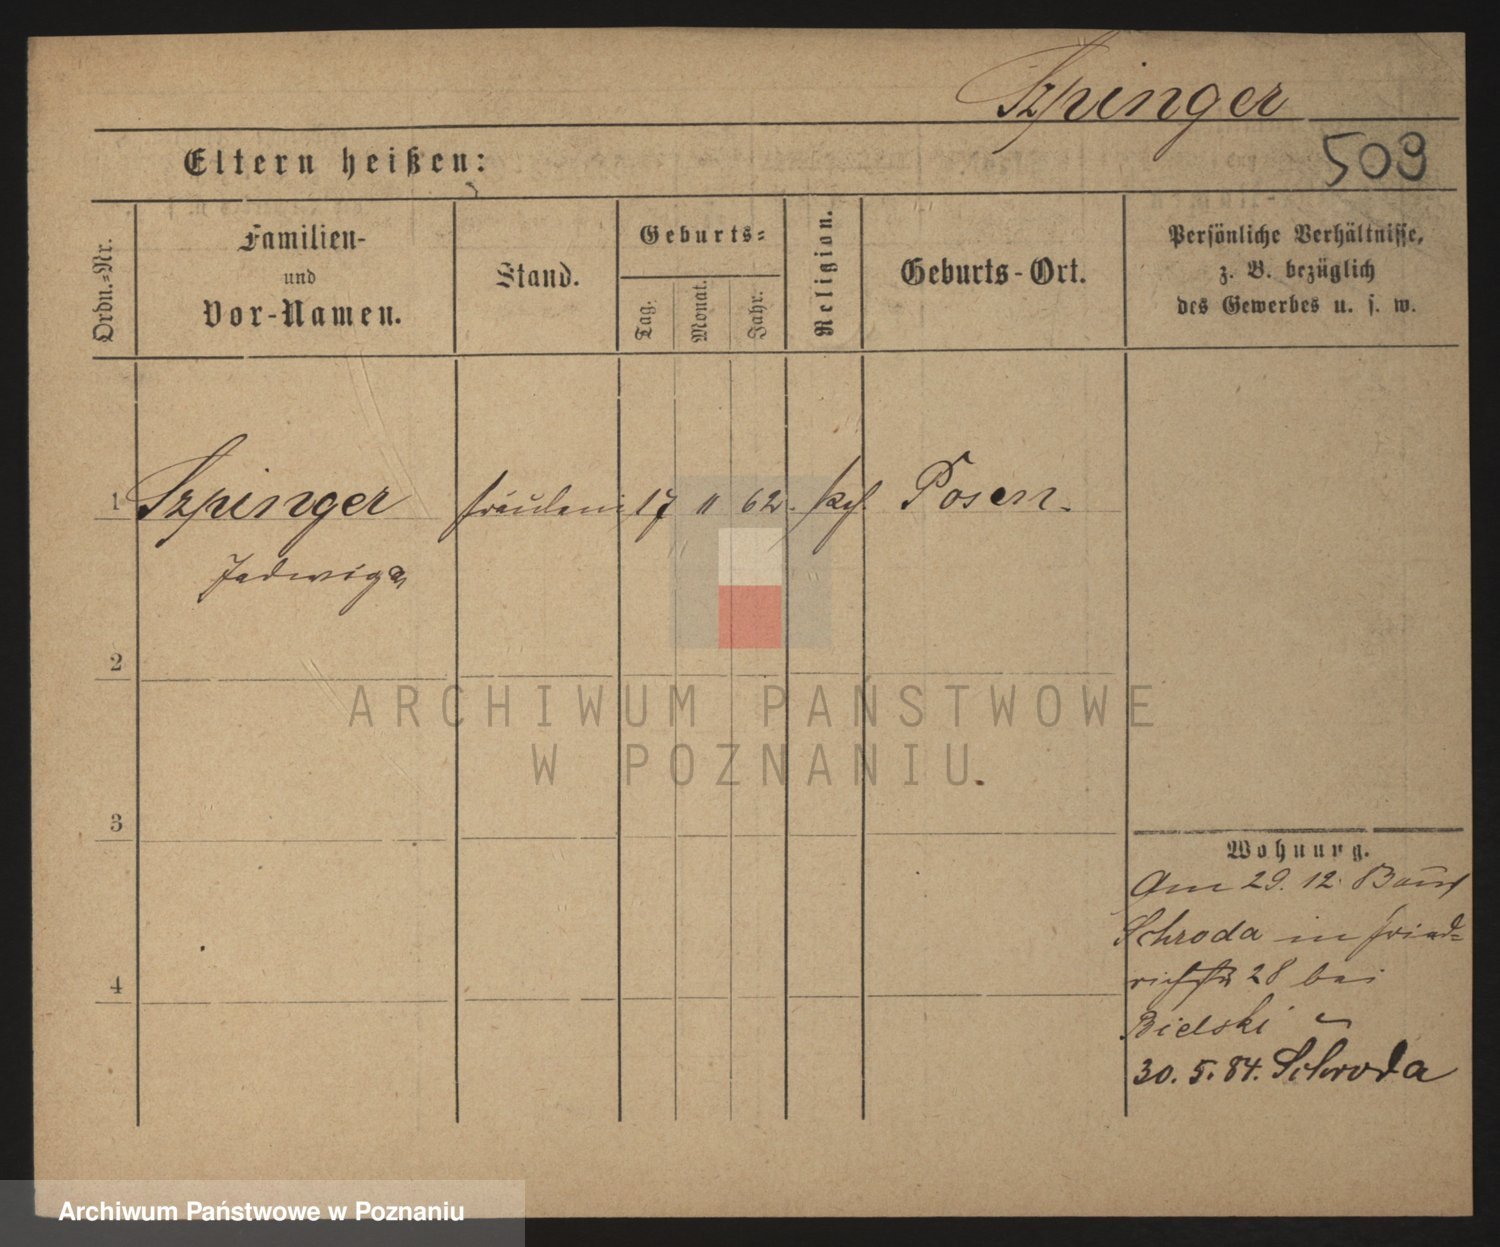 Szpinger
509
Eltern heißen:
Ordn.-Nr.
Familien-
und
Vor-Namen.
Stand.
Geburts-
Tag.
Monat.
Jahr.
Religion.
Geburts-Ort.
Persönliche Verhältnisse,
z. B. bezüglich
des Gewerbes u. s. w.
1 Szpinger Fräulein 17 11 62. kath. Posen.
Jadwiga
2
3
4
ARCHIWUM PAŃSTWOWE
W POZNANIU
Wohnung.
Am 29. 12.
Schroda in Fried=
richstr 28 bei
Bielski
30. 5. 84. Schroda
Archiwum Państwowe w Poznaniu